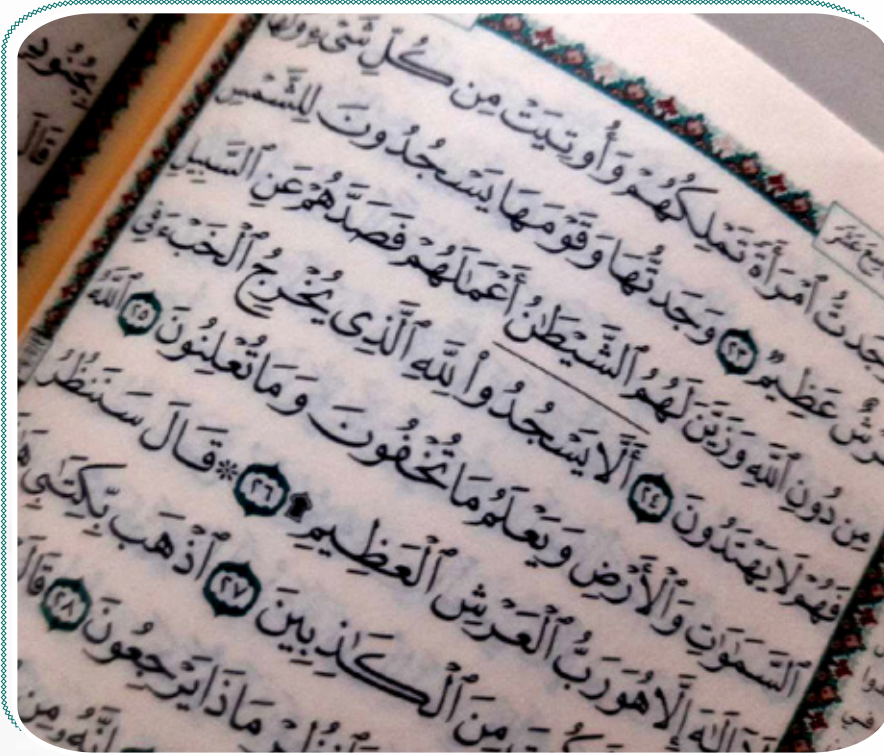 وَجَدتُّ ٱمْرَأَةً تَمْلِكُهُمْ وَأُوتِيَتْ مِن كُلِّ شَىْءٍ وَلَهَا
عَرْشٌ عَظِيمٌ ٢٣ وَجَدتُّهَا وَقَوْمَهَا يَسْجُدُونَ لِلشَّمْسِ
مِن دُونِ ٱللَّهِ وَزَيَّنَ لَهُمُ ٱلشَّيْطَٰنُ أَعْمَٰلَهُمْ فَصَدَّهُمْ عَنِ ٱلسَّبِيلِ
فَهُمْ لَا يَهْتَدُونَ ٢٤ أَلَّا يَسْجُدُوا۟ لِلَّهِ ٱلَّذِى يُخْرِجُ ٱلْخَبْءَ فِى
ٱلسَّمَٰوَٰتِ وَٱلْأَرْضِ وَيَعْلَمُ مَا تُخْفُونَ وَمَا تُعْلِنُونَ ٢٥ ٱللَّهُ
لَآ إِلَٰهَ إِلَّا هُوَ رَبُّ ٱلْعَرْشِ ٱلْعَظِيمِ ۩ ٢٦ ۞ قَالَ سَنَنظُرُ
مِنَ ٱلْكَٰذِبِينَ ٢٧ ٱذْهَب بِّكِتَٰبِى
مَاذَا يَرْجِعُونَ ٢٨ قَالَتْ
إِنَّهُۥ مِن